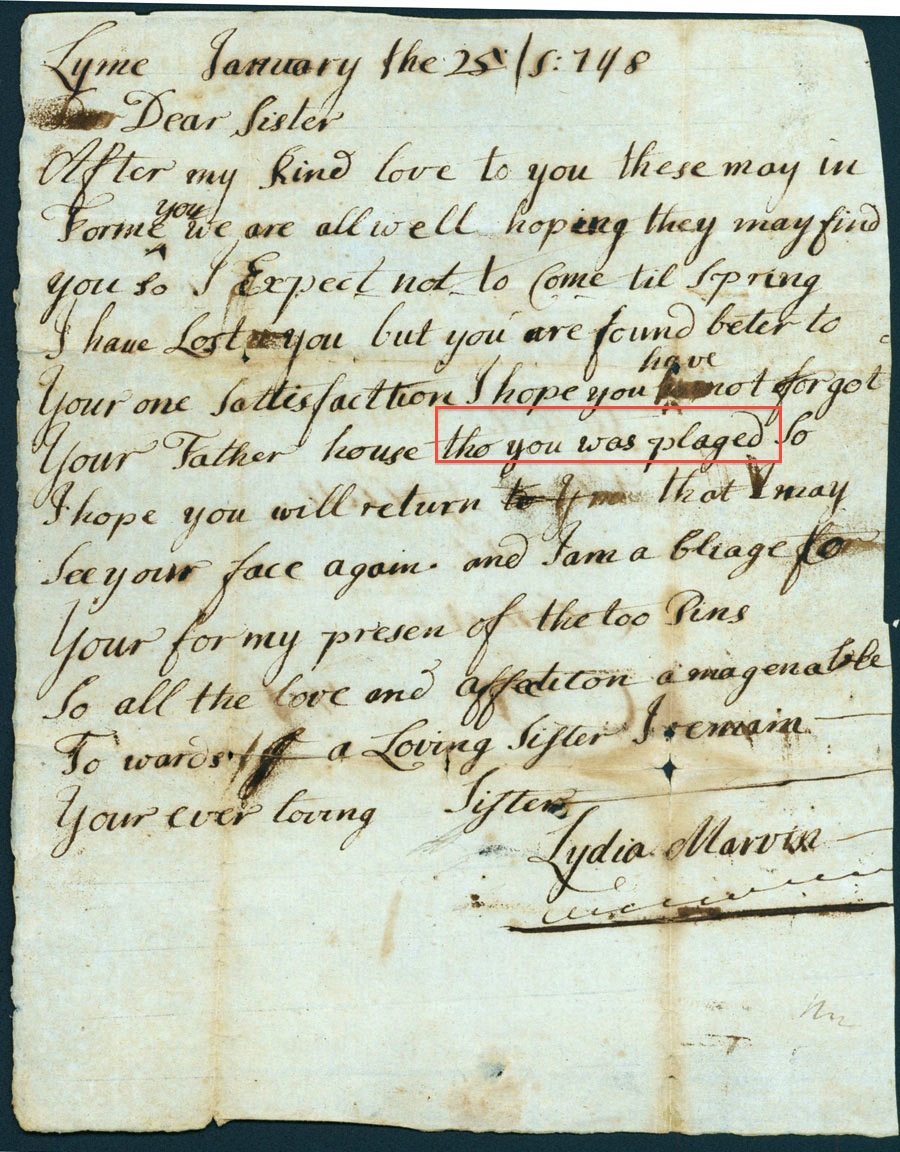 Lyme January the 25 1748
Dear Sister
After my kind love to you these may in
Forme you we are all well hoping they may find
you so I Expect not to Come til Spring
I have Lost you but you are found beter to
Your one Sattisfacttion I hope you have not forgot
Your Father house tho you was plaged So
I hope you will return that I may
See your face again. and I am a bliage to
Your for my presen of the too Pins
So all the love and affatiton a magenable
To wards a Loving Sister I remain
Your ever loving Sister
Lydia Marvin